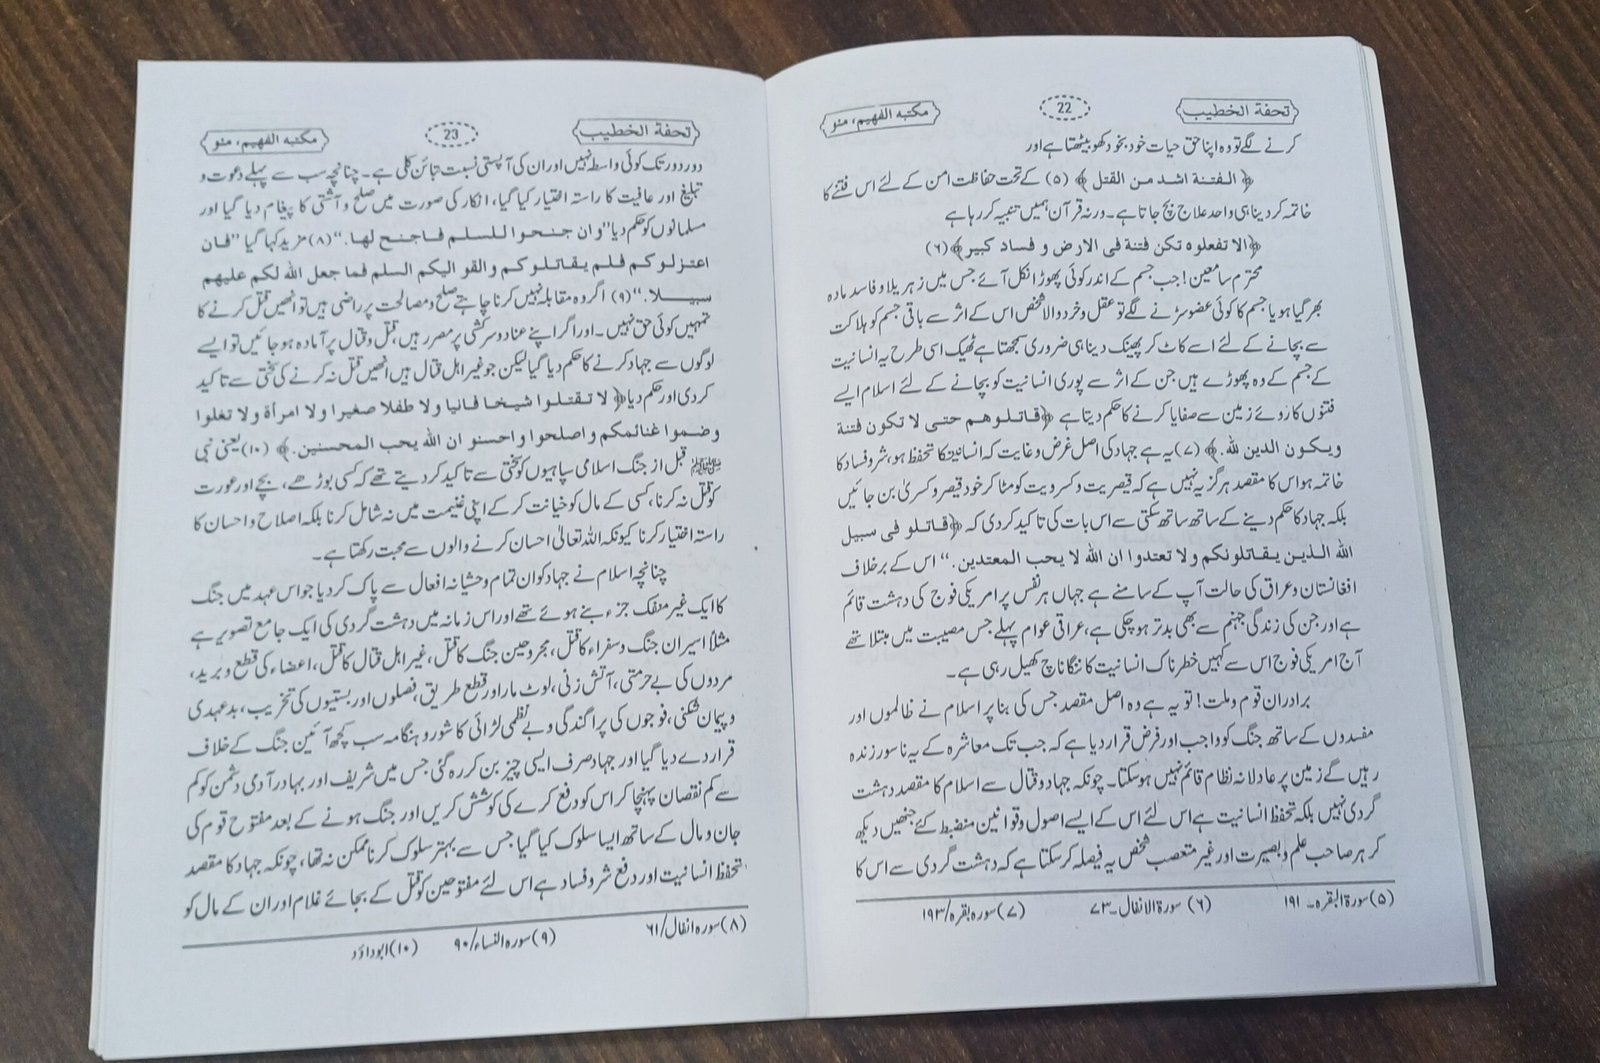 تحفة الخطيب
22
مکتبہ الفہیم، مئو
کرنے لگے تو وہ اپنا حق حیات خود بخود کھو بیٹھتا ہے اور
﴿الفتنة اشد من القتل﴾ (۵) کے تحت حفاظت امن کے لئے اس فتنے کا
خاتمہ کر دینا ہی واحد علاج بچ جاتا ہے۔ ورنہ قرآن ہمیں تنبیہ کر رہا ہے
﴿الا تفعلوه تكن فتنة فى الارض و فساد كبير﴾ (۶)
محترم سامعین! جب جسم کے اندر کوئی پھوڑا نکل آئے جس میں زہریلا و فاسد مادہ
بھر گیا ہو یا جسم کا کوئی عضو سڑنے لگے تو عقل وخرد والا شخص اس کے اثر سے باقی جسم کو ہلاکت
سے بچانے کے لئے اسے کاٹ کر پھینک دینا ہی ضروری سمجھتا ہے ٹھیک اسی طرح یہ انسانیت
کے جسم کے وہ پھوڑے ہیں جن کے اثر سے پوری انسانیت کو بچانے کے لئے اسلام ایسے
فتنوں کا روئے زمین سے صفایا کرنے کا حکم دیتا ہے ﴿قاتلوهم حتى لا تكون فتنة
ويكون الدين لله.﴾ (۷) یہ ہے جہاد کی اصل غرض وغایت کہ انسانیت کا تحفظ ہو، شر وفساد کا
خاتمہ ہو اس کا مقصد ہرگز یہ نہیں ہے کہ قیصریت وکسرویت کو مٹا کر خود قیصر وکسریٰ بن جائیں
بلکہ جہاد کا حکم دینے کے ساتھ ساتھ سختی سے اس بات کی تاکید کر دی کہ ﴿قاتلو فى سبيل
الله الذين يقاتلونكم ولا تعتدوا ان الله لا يحب المعتدين.“ اس کے برخلاف
افغانستان وعراق کی حالت آپ کے سامنے ہے جہاں ہر نفس پر امریکی فوج کی دہشت قائم
ہے اور جن کی زندگی جہنم سے بھی بدتر ہو چکی ہے، عراقی عوام پہلے جس مصیبت میں مبتلا تھے
آج امریکی فوج اس سے کہیں خطرناک انسانیت کا ننگا ناچ کھیل رہی ہے۔
برادران قوم وملت! تو یہ ہے وہ اصل مقصد جس کی بنا پر اسلام نے ظالموں اور
مفسدوں کے ساتھ جنگ کو واجب اور فرض قرار دیا ہے کہ جب تک معاشرہ کے یہ ناسور زندہ
رہیں گے زمین پر عادلانہ نظام قائم نہیں ہو سکتا۔ چونکہ جہاد وقتال سے اسلام کا مقصد دہشت
گردی نہیں بلکہ تحفظ انسانیت ہے اس لئے اس کے ایسے اصول وقوانین منضبط کئے جنھیں دیکھ
کر ہر صاحب علم وبصیرت اور غیر متعصب شخص یہ فیصلہ کر سکتا ہے کہ دہشت گردی سے اس کا
(۵) سورۃ البقرہ۔ ۱۹۱ (۶) سورۃ الانفال۔ ۷۳ (۷) سورہ بقرہ/۱۹۳
تحفة الخطيب
23
مکتبہ الفہیم، مئو
دور دور تک کوئی واسطہ نہیں اور ان کی آپسی نسبت تبائن کلی ہے۔ چنانچہ سب سے پہلے دعوت و
تبلیغ اور عافیت کا راستہ اختیار کیا گیا، انکار کی صورت میں صلح و آشتی کا پیغام دیا گیا اور
مسلمانوں کو حکم دیا ”وان جنحوا للسلم فاجنح لها.“ (۸) مزید کہا گیا ”فان
اعتزلوكم فلم يقاتلوكم والقو اليكم السلم فما جعل الله لكم عليهم
سبيلا.“ (۹) اگر وہ مقابلہ نہیں کرنا چاہتے صلح ومصالحت پر راضی ہیں تو انھیں قتل کرنے کا
تمہیں کوئی حق نہیں۔ اور اگر اپنے عناد وسرکشی پر مصر رہیں، قتل وقتال پر آمادہ ہو جائیں تو ایسے
لوگوں سے جہاد کرنے کا حکم دیا گیا لیکن جو غیر اہل قتال ہیں انھیں قتل نہ کرنے کی سختی سے تاکید
کر دی اور حکم دیا ﴿لا تقتلوا شيخا فانيا ولا طفلا صغيرا ولا امرأة ولا تغلوا
وضموا غنائمكم واصلحوا واحسنو ان الله يحب المحسنين.﴾ (۱۰) یعنی نبی
ﷺ قبل از جنگ اسلامی سپاہیوں کو سختی سے تاکید کر دیتے تھے کہ کسی بوڑھے، بچے اور عورت
کو قتل نہ کرنا، کسی کے مال کو خیانت کر کے اپنی غنیمت میں نہ شامل کرنا بلکہ اصلاح واحسان کا
راستہ اختیار کرنا کیونکہ اللہ تعالیٰ احسان کرنے والوں سے محبت رکھتا ہے۔
چنانچہ اسلام نے جہاد کو ان تمام وحشیانہ افعال سے پاک کر دیا جو اس عہد میں جنگ
کا ایک غیر منفک جزء بنے ہوئے تھے اور اس زمانہ میں دہشت گردی کی ایک جامع تصویر ہے
مثلاً اسیران جنگ وسفراء کا قتل، مجروحین جنگ کا قتل، غیر اہل قتال کا قتل، اعضاء کی قطع وبرید،
مردوں کی بے حرمتی، آتش زنی، لوٹ مار اور قطع طریق، فصلوں اور بستیوں کی تخریب، بدعہدی
وپیمان شکنی، فوجوں کی پراگندگی وبے نظمی لڑائی کا شور وہنگامہ سب کچھ آئین جنگ کے خلاف
قرار دے دیا گیا اور جہاد صرف ایسی چیز بن کر رہ گئی جس میں شریف اور بہادر آدمی دشمن کو کم
سے کم نقصان پہنچا کر اس کو دفع کرے کی کوشش کریں اور جنگ ہونے کے بعد مفتوح قوم کی
جان ومال کے ساتھ ایسا سلوک کیا گیا جس سے بہتر سلوک کرنا ممکن نہ تھا، چونکہ جہاد کا مقصد
تحفظ انسانیت اور دفع شر وفساد ہے اس لئے مفتوحین کو قتل کے بجائے غلام اور ان کے مال کو
(۸) سورہ انفال/۶۱ (۹) سورہ النساء/۹۰ (۱۰) ابوداؤد